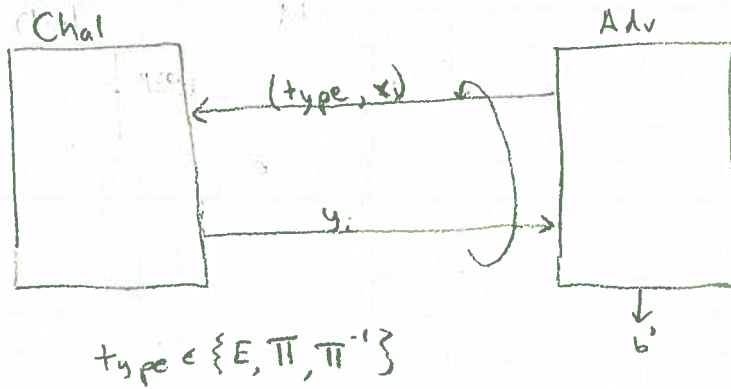 Chal
Adv
(type, xᵢ)
yᵢ
b'
type ∈ {E, Π, Π⁻¹}